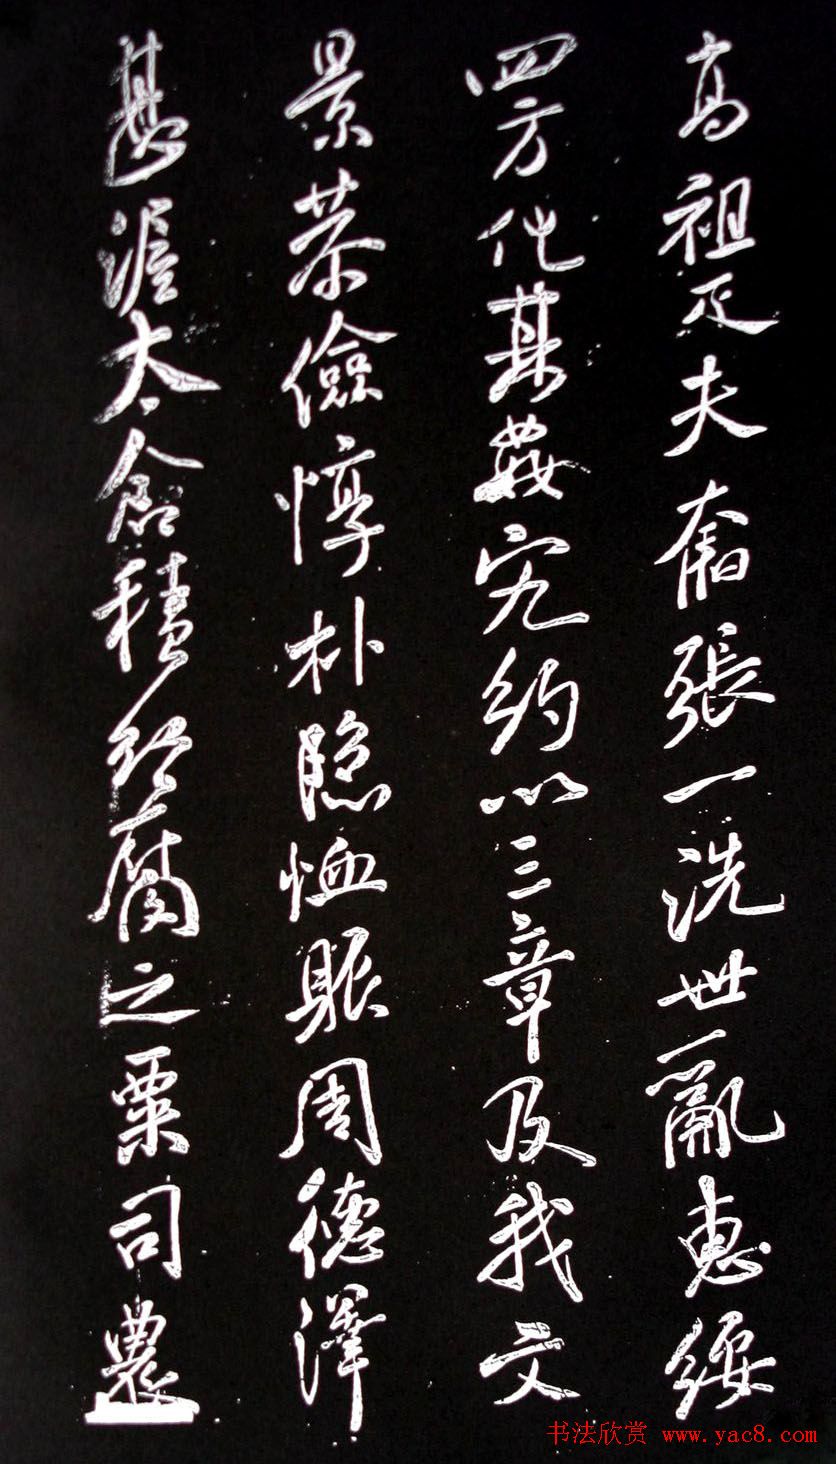 高祖匹夫奮張一洗世亂惠綏
四方化姦宄約以三章及我文
景恭儉惇朴隱恤賑周德澤
甚渥太倉積紅腐之粟司農
书法欣赏 www.yac8.com